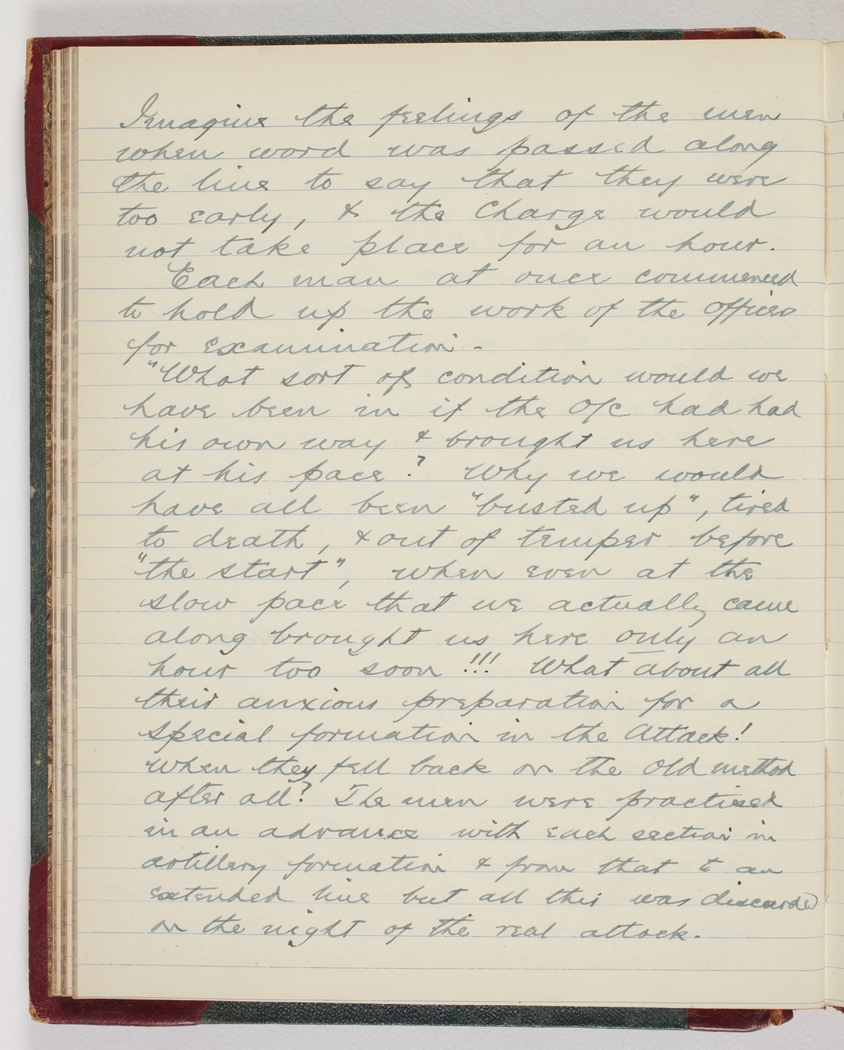 Imagine the feelings of the men
when word was passed along
the line to say that they were
too early, & the Charge would
not take place for an hour.
Each man at once commenced
to hold up the work of the officer
for examination.
"What sort of condition would we
have been in if the O/C had had
his own way & brought us here
at his pace? Why we would
have all been "busted up", tired
to death, & out of temper before
"the start", when even at the
slow pace that we actually came
along brought us here only an
hour too soon!!! What about all
their anxious preparation for a
special formation in the Attack!
When they fell back on the old method
after all? The men were practised
in an advance with each section in
artillery formation & from that to an
extended line but all this was discarded
on the night of the real attack.